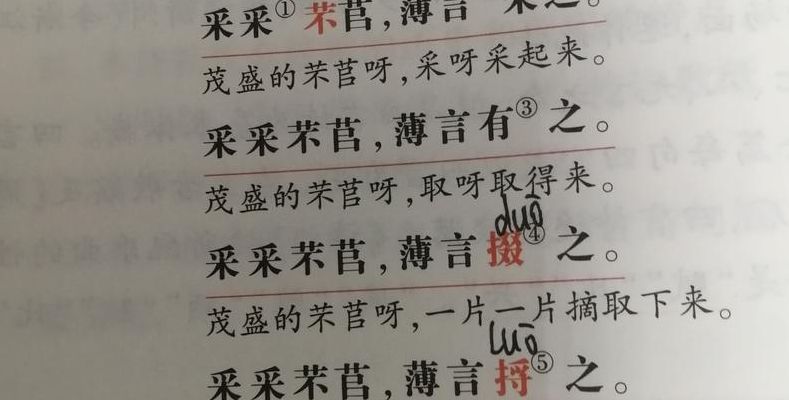 采采①芣苢，薄言 采之。
茂盛的芣苢呀，采呀采起来。
采采芣苢，薄言有③之。
茂盛的芣苢呀，取呀取得来。
duō
采采芣苢，薄言掇④之。
茂盛的芣苢呀，一片一片摘取下来。
luō
采采芣苢，薄言捋⑤之。